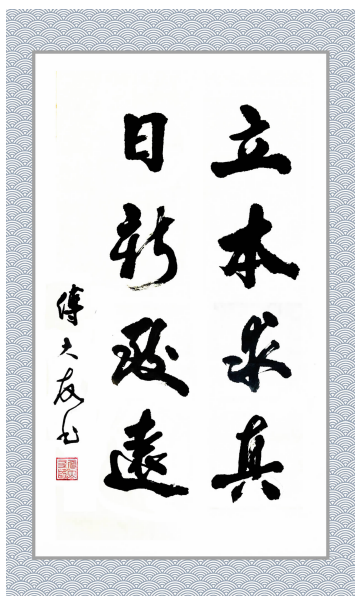 立本求真
日新致遠
傅大友书